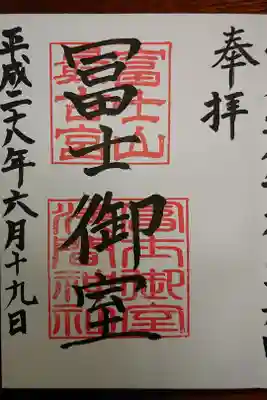 奉拝
冨士御室
富士山
最古宮
冨士御室
浅間神社
平成二十八年六月十九日